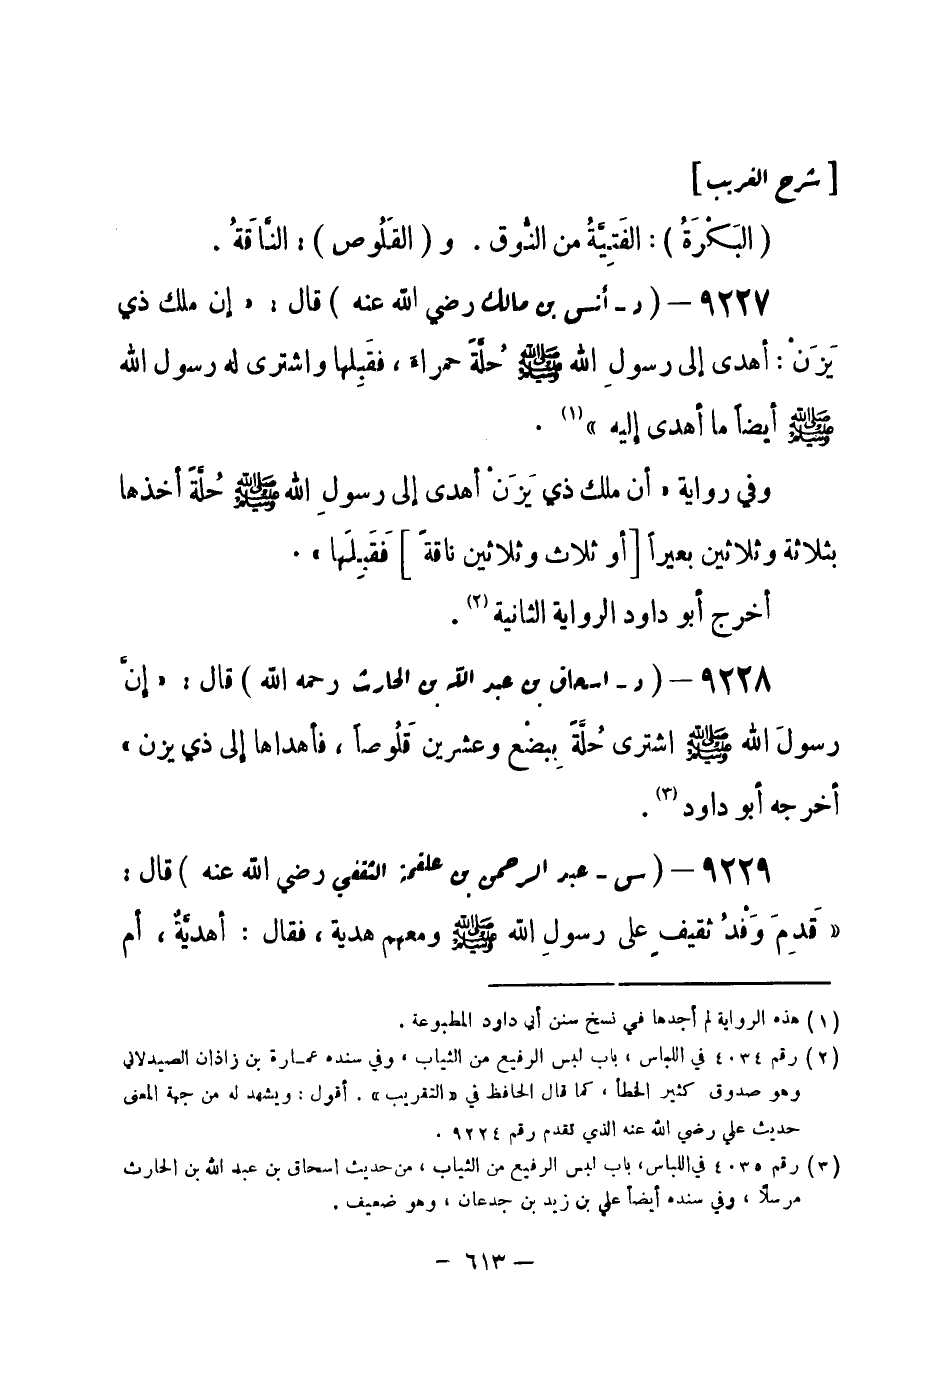 [ شرح الغريب ]
( البَكْرَةُ ) : الفَتِيَّةُ من النُّوق . و ( القَلُوص ) : النَّاقَةُ .
٩٢٢٧ – ( د ـ أنس بن مالك رضي الله عنه ) قال : « إن ملك ذي
يَزَنْ : أهدى إلى رسولِ الله ﷺ حُلَّةً حمراءَ ، فقَبِلها واشترى له رسول الله
ﷺ أيضاً ما أهدى إليه » (١) .
وفي رواية « أن ملك ذي يَزَنْ أهدى إلى رسولِ الله ﷺ حُلَّةً أخذها
بثلاثة وثلاثين بعيراً [ أو ثلاث وثلاثين ناقةً ] فَقَبِلَها » .
أخرج أبو داود الرواية الثانية (٢) .
٩٢٢٨ – ( د ـ اسحاق بن عبد الله بن الحارث رحمه الله ) قال : « إنَّ
رسولَ الله ﷺ اشترى حُلَّةً بِبضْعٍ وعشرين قَلُوصاً ، فأهداها إلى ذي يزن »
أخرجه أبو داود (٣) .
٩٢٢٩ – ( س ـ عبد الرحمن بن علقمة الثقفي رضي الله عنه ) قال :
« قَدِمَ وَفْدُ ثقيفٍ على رسولِ الله ﷺ ومعهم هدية ، فقال : أهديَّةٌ ، أم
(١) هذه الرواية لم أجدها في نسخ سنن أبي داود المطبوعة .
(٢) رقم ٤٠٣٤ في اللباس ، باب لبس الرفيع من الثياب ، وفي سنده عمـارة بن زاذان الصيدلاني
وهو صدوق كثير الخطأ ، كما قال الحافظ في « التقريب » . أقول : ويشهد له من جهة المعنى
حديث علي رضي الله عنه الذي تقدم رقم ٩٢٢٤ .
(٣) رقم ٤٠٣٥ في اللباس ، باب لبس الرفيع من الثياب ، من حديث اسحاق بن عبد الله بن الحارث
مرسلاً ، وفي سنده أيضاً علي بن زيد بن جدعان ، وهو ضعيف .
– ٦١٣ –